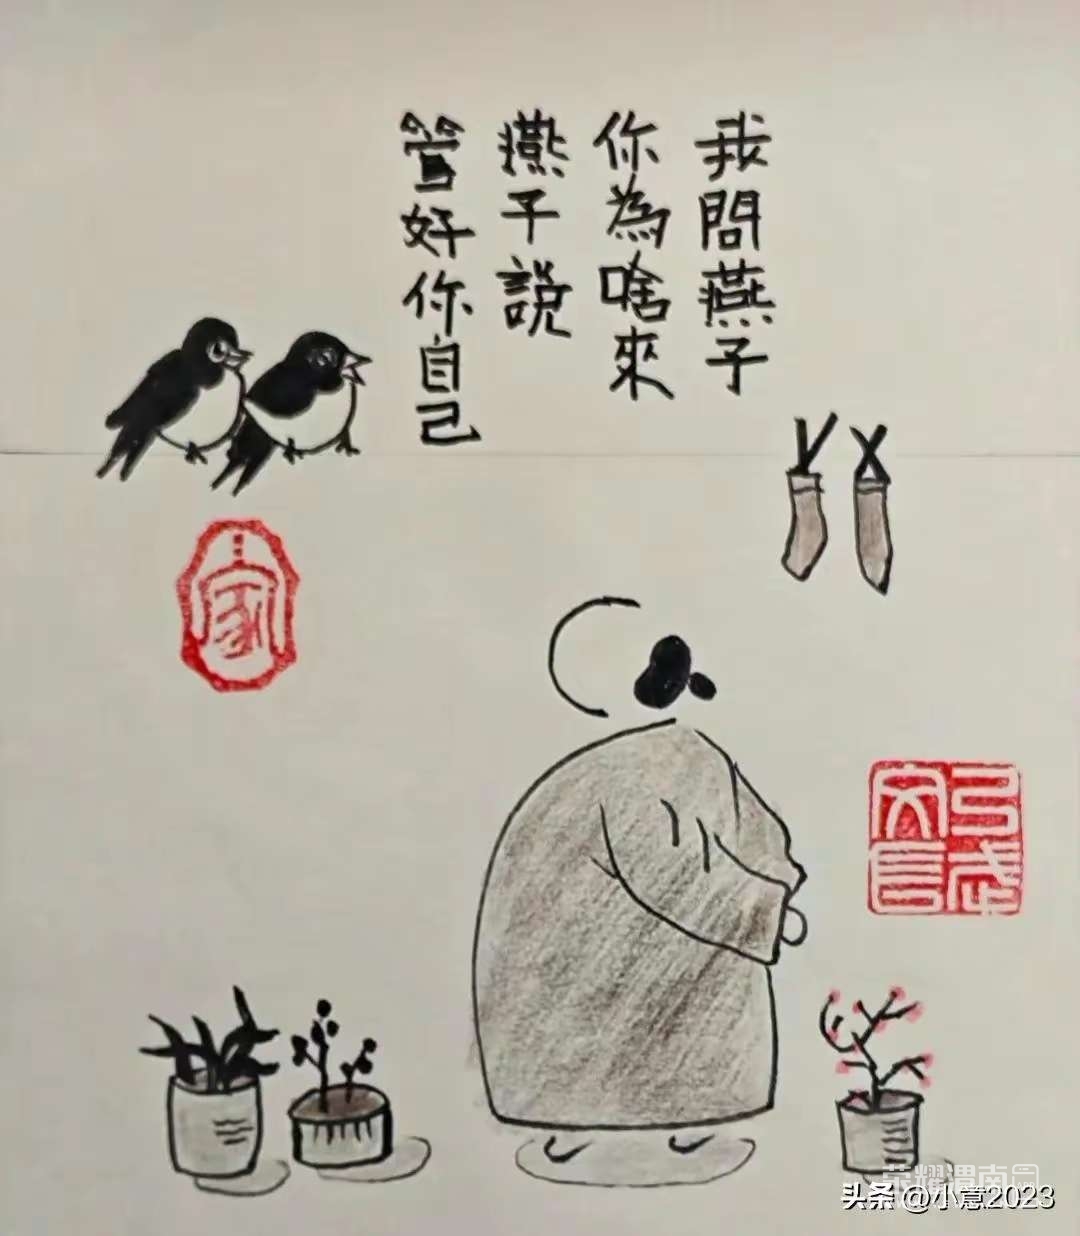 我問燕子
你為啥來
燕子說
管好你自己
家
荣耀渭南网
头条 @小意2023